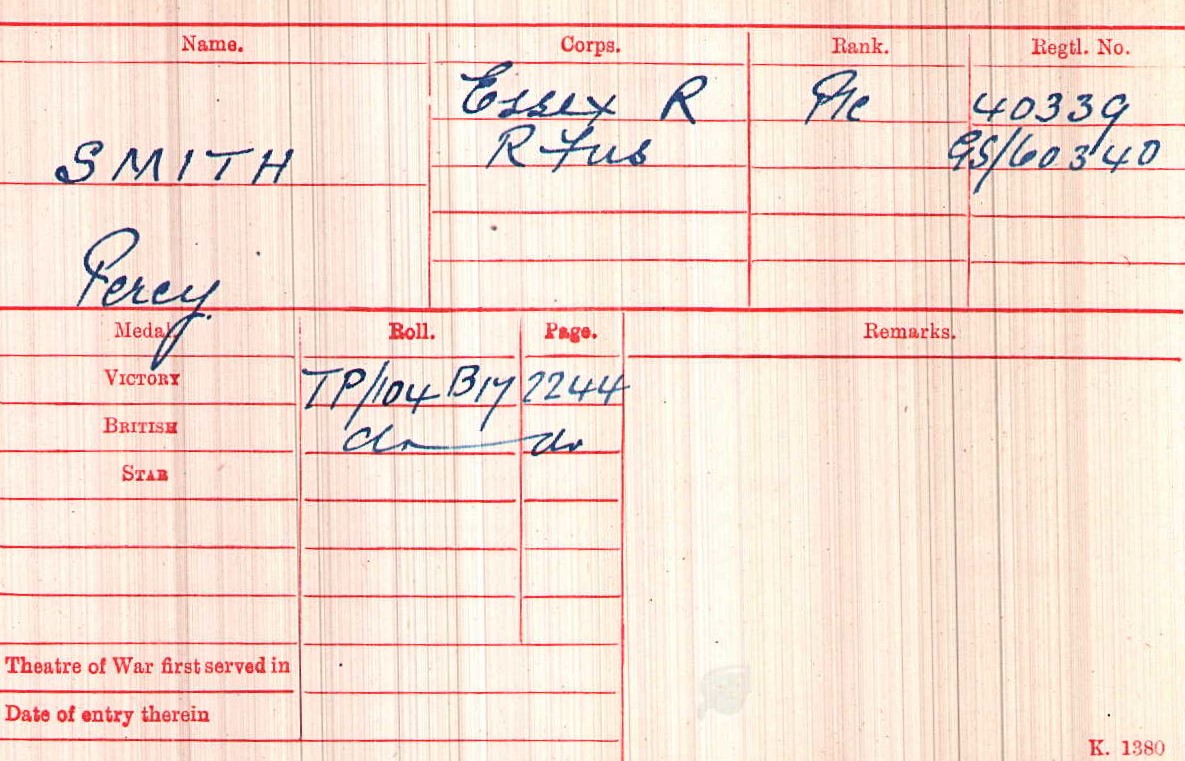 Name. Corps. Rank. Regtl. No.
Essex R Pte 40339
SMITH R Fus GS/60340
Percy
Medal Roll. Page. Remarks.
VICTORY TP/104 B17 2244
BRITISH do do
STAR
Theatre of War first served in
Date of entry therein
K. 1380